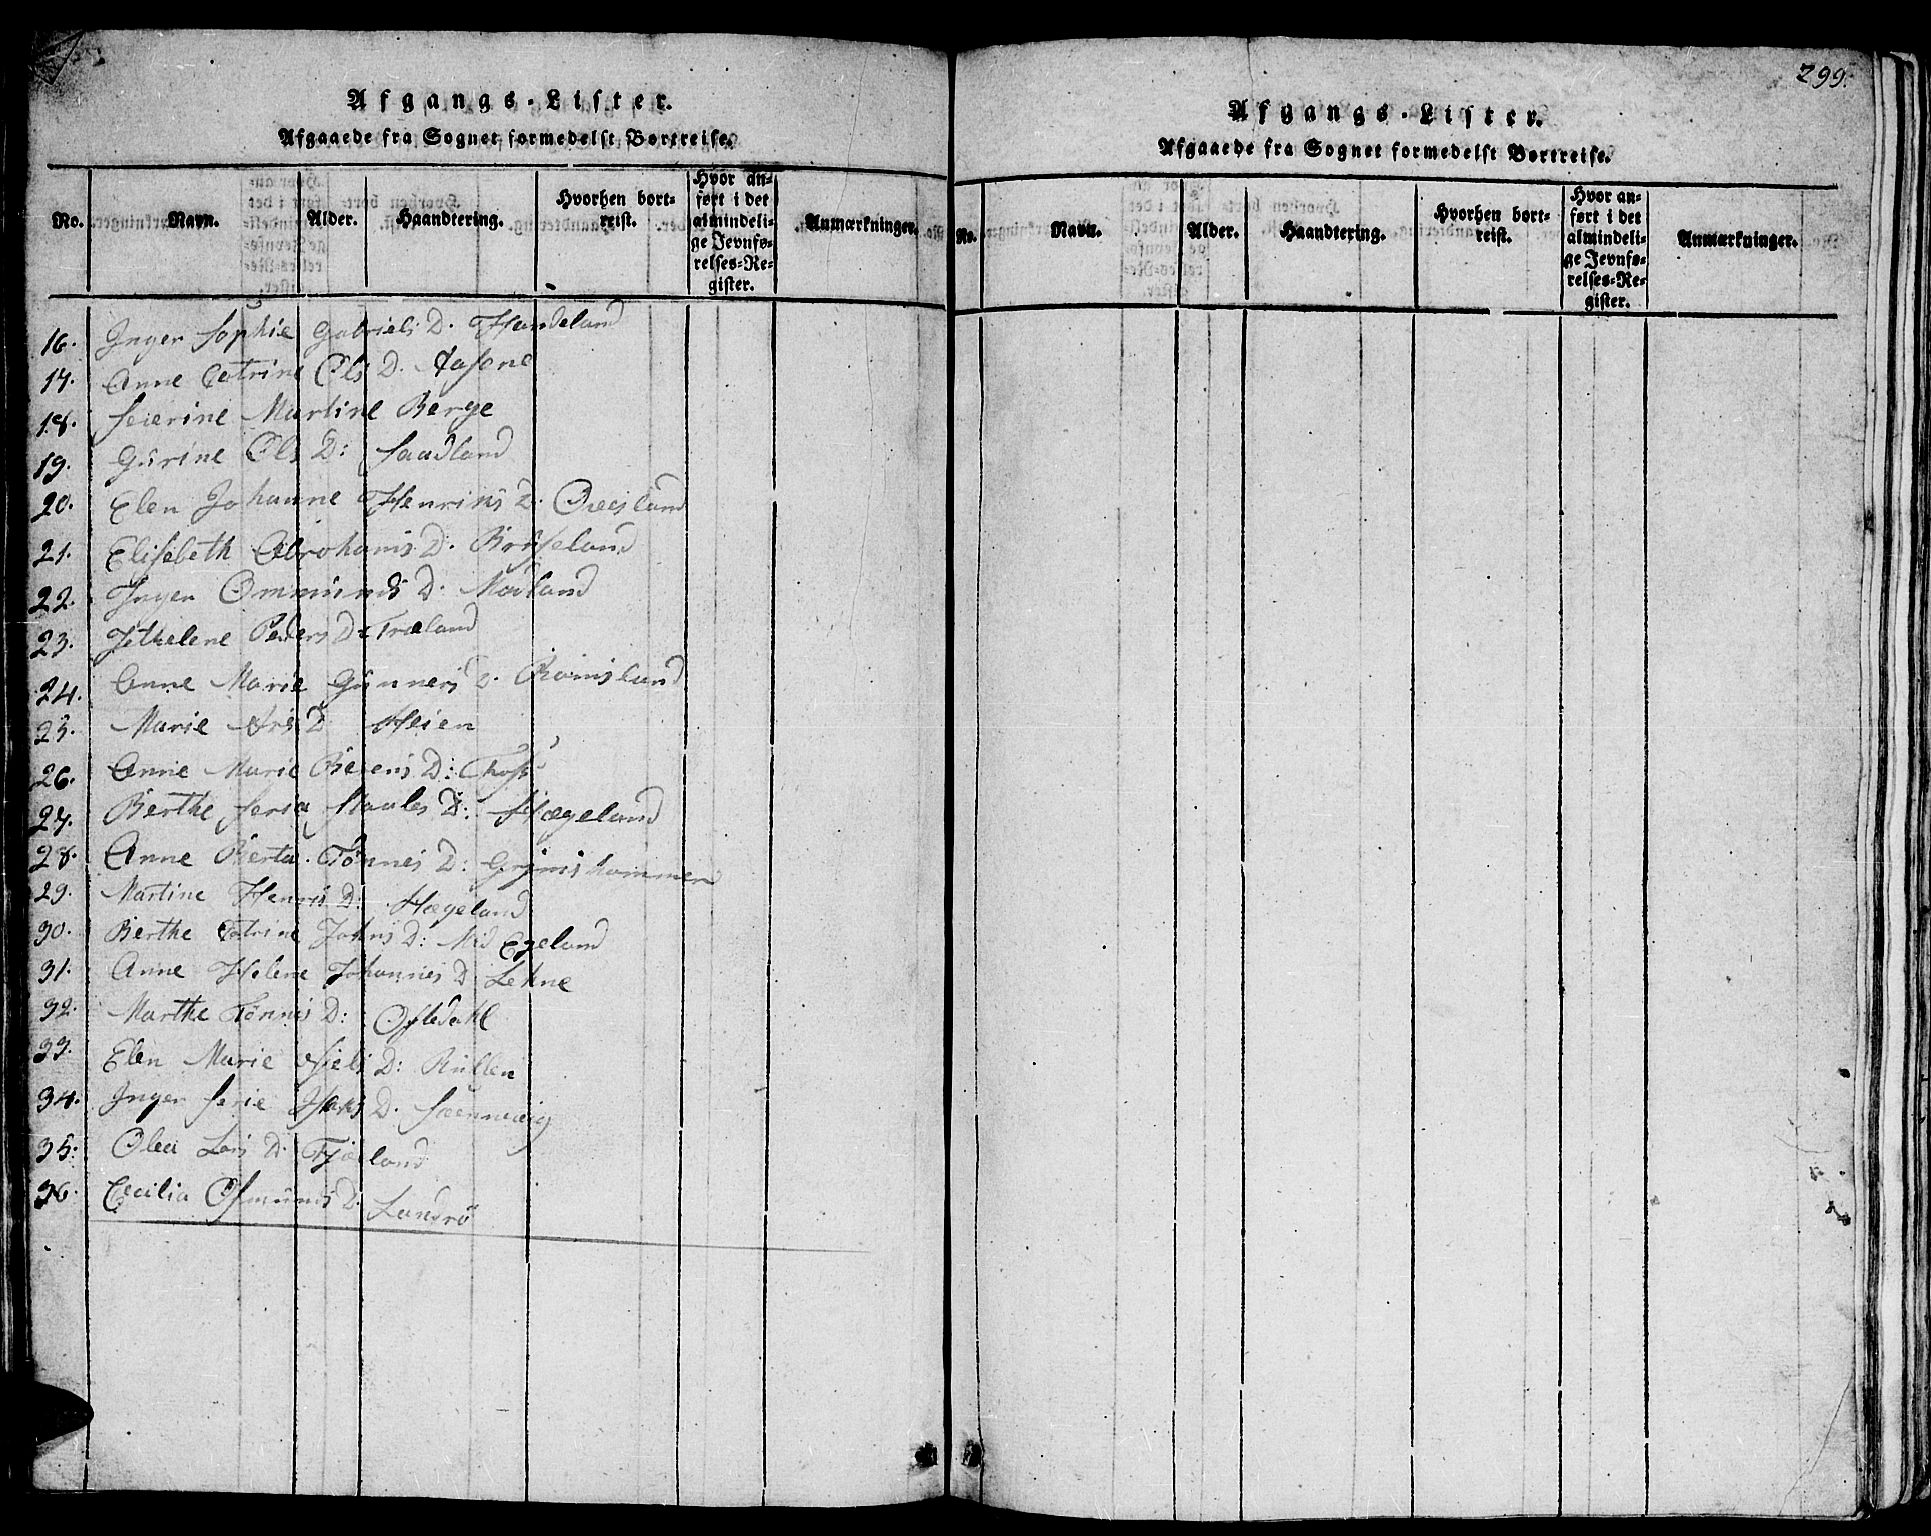 Afgangs-Lister.
Afgaaede fra Sognet formedelst Bortreise.
No. Navn. Alder. Haandtering. Hvorhen bort-reist. Hvor an-ført i det almindeli-ge Jevnfø-relses-Re-gister. Anmærkninger.
16. Inger Sophie Gabriels D. Handeland
17. Anne Catrine Ols D.
18. Serine Martine Berge
19. Gurine Ols D: Saudland
20. Elen Johanne Henriks D.
21. Elisebeth Abrahams D.
22. Inger Ommunds D.
23. Peders D: Træland
24. Anne Marie Gunners D.
25. Marie D Heien
26. Anne Marie D:
27. Berthe Seria D: Hægeland
28. Anne Berta Tönnes D:
29. Martine Henriks D: Hægeland
30. Berthe Catrine Johns D: Mid Egeland
31. Anne Helene Johannes D Lehne
32. Marthe Tönnes D: Ofstedahl
33. Elen Marie Niels D:
34. Inger Serie D.
35. Olea Lars D.
36. Cecilia Osmunds D. Landrö
299.
Afgangs-Lister.
Afgaaede fra Sognet formedelst Bortreise.
No. Navn. Alder. Haandtering. Hvorhen bort-reist. Hvor an-ført i det almindeli-ge Jevnfø-relses-Re-gister. Anmærkninger.